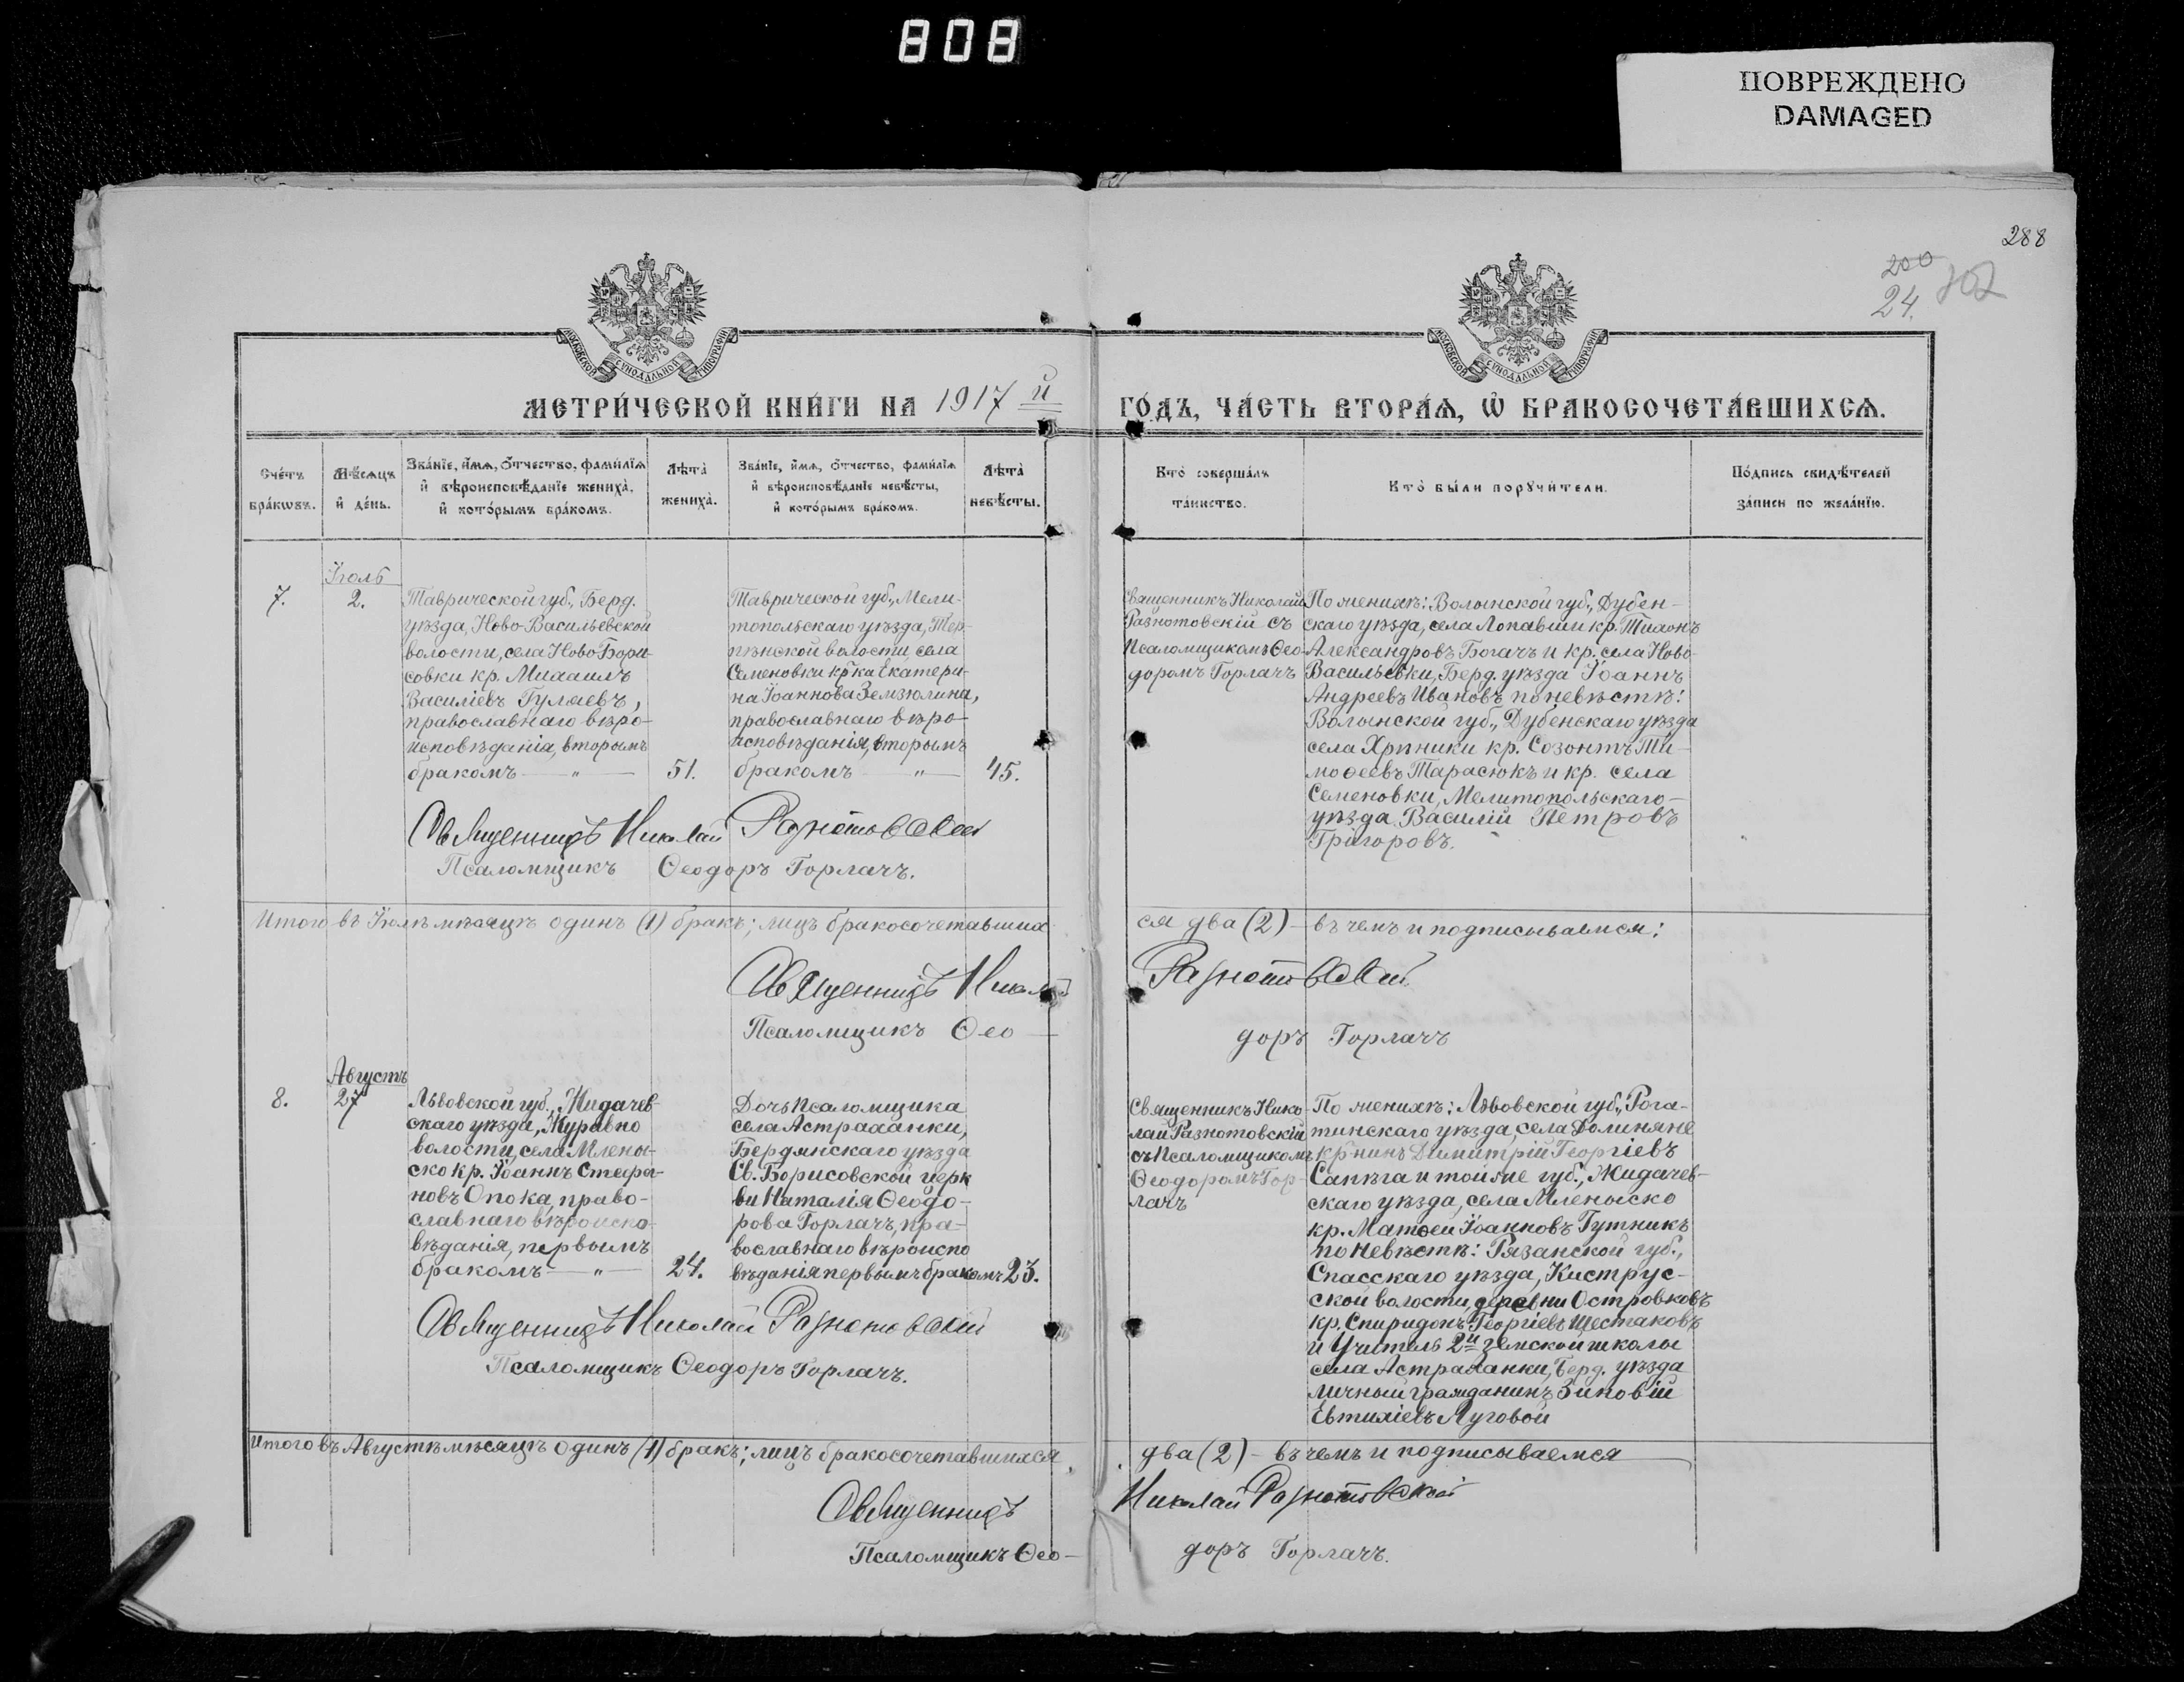 808
ПОВРЕЖДЕНО
DAMAGED
288
200
24.
МОСКОВСКОЙ СѴНОДАЛЬНОЙ ТИПОГРАФІИ
МОСКОВСКОЙ СѴНОДАЛЬНОЙ ТИПОГРАФІИ
МЕТРИ́ЧЕСКОЙ КНИ́ГИ НА 1917 й ГО́ДЪ, ЧА́СТЬ ВТОРА́Ѧ, Ѽ БРАКОСОЧЕТА́ВШИХСѦ.
Сче́тъ
бра́кѡвъ.
Мѣ́сѧцъ
и҆ де́нь.
Зва́нїе, и҆́мѧ, о҆́тчество, фами́лїѧ
и҆ вѣроисповѣ́данїе жениха̀,
и҆ кото́рымъ бра́комъ.
Лѣта̀
жениха̀.
Зва́нїе, и҆́мѧ, о҆́тчество, фами́лїѧ
и҆ вѣроисповѣ́данїе невѣ́сты,
и҆ кото́рымъ бра́комъ.
Лѣта̀
невѣ́сты.
Кто̀ соверша́лъ
та́инство.
Кто̀ бы́ли порꙋчи́тели.
По́дпись свидѣ́телей
за́писи по жела́нїю.
Іюль
7.
2.
Таврической губ., Берд.
уѣзда, Ново-Васильевской
волости, села Ново Бори-
совки кр. Михаилъ
Василіевъ Гуляевъ,
православнаго вѣро-
исповѣданія, вторымъ
бракомъ — " —
51.
Таврической губ., Мели-
топольскаго уѣзда, Тер-
пѣнской волости села
Семеновки кр-ка Екатери-
на Іоаннова Земзюлина,
православнаго вѣро-
исповѣданія, вторымъ
бракомъ — " —
45.
Священникъ Николай
Разнотовскій съ
Псаломщикомъ Ѳео-
доромъ Горлачъ
По женихѣ: Волынской губ., Дубен-
скаго уѣзда, села Лопавши кр. Тихонъ
Александровъ Богачъ и кр. села Ново-
Васильевки, Берд. уѣзда Іоаннъ
Андреевъ Ивановъ по невѣстѣ:
Волынской губ., Дубенскаго уѣзда
села Хрѣники кр. Созонтъ Ти-
моѳеевъ Тарасюкъ и кр. села
Семеновки, Мелитопольскаго
уѣзда Василій Петровъ
Григоровъ.
Священникъ Николай Разнотовскій
Псаломщикъ Ѳеодоръ Горлачъ.
Итого въ Іюлѣ мѣсяцѣ одинъ (1) бракъ; лицъ бракосочетавших
ся два (2) — въ чемъ и подписываемся:
Священникъ Николай Разнотовскій
Псаломщикъ Ѳео — доръ Горлачъ
Августъ
8.
27
Львовской губ., Жидачев-
скаго уѣзда, Журавно
волости, села Млены-
ско кр. Іоаннъ Стефа-
новъ Опока, право-
славнаго вѣроиспо-
вѣданія, первымъ
бракомъ — " —
24.
Дочь Псаломщика
села Астраханки,
Бердянскаго уѣзда
Св. Борисовской церк
ви Наталія Ѳеодо-
рова Горлачъ, пра-
вославнаго вѣроиспо
вѣданія первымъ бракомъ
23.
Священникъ Нико-
лай Разнотовскій
съ Псаломщикомъ
Ѳеодоромъ Гор-
лачъ
По женихѣ: Львовской губ., Рога-
тинскаго уѣзда, села Долиняне
кр-нинъ Димитрій Георгіевъ
Сапѣга и той же губ., Жидачев-
скаго уѣзда, села Мленыско
кр. Матѳей Іоанновъ Гутникъ
по невѣстѣ: Рязанской губ.,
Спасскаго уѣзда, Киструс-
ской волости, деревни Островковъ
кр. Спиридонъ Георгіевъ Шестаковъ
и Учитель 2й земской школы
села Астраханки, Берд. уѣзда
личный гражданинъ Зиновій
Евтихіевъ Луговой
Священникъ Николай Разнотовскій
Псаломщикъ Ѳеодоръ Горлачъ.
Итого въ Августѣ мѣсяцѣ одинъ (1) бракъ; лицъ бракосочетавшихся
два (2) — въ чемъ и подписываемся
Священникъ Николай Разнотовскій
Псаломщикъ Ѳео — доръ Горлачъ.